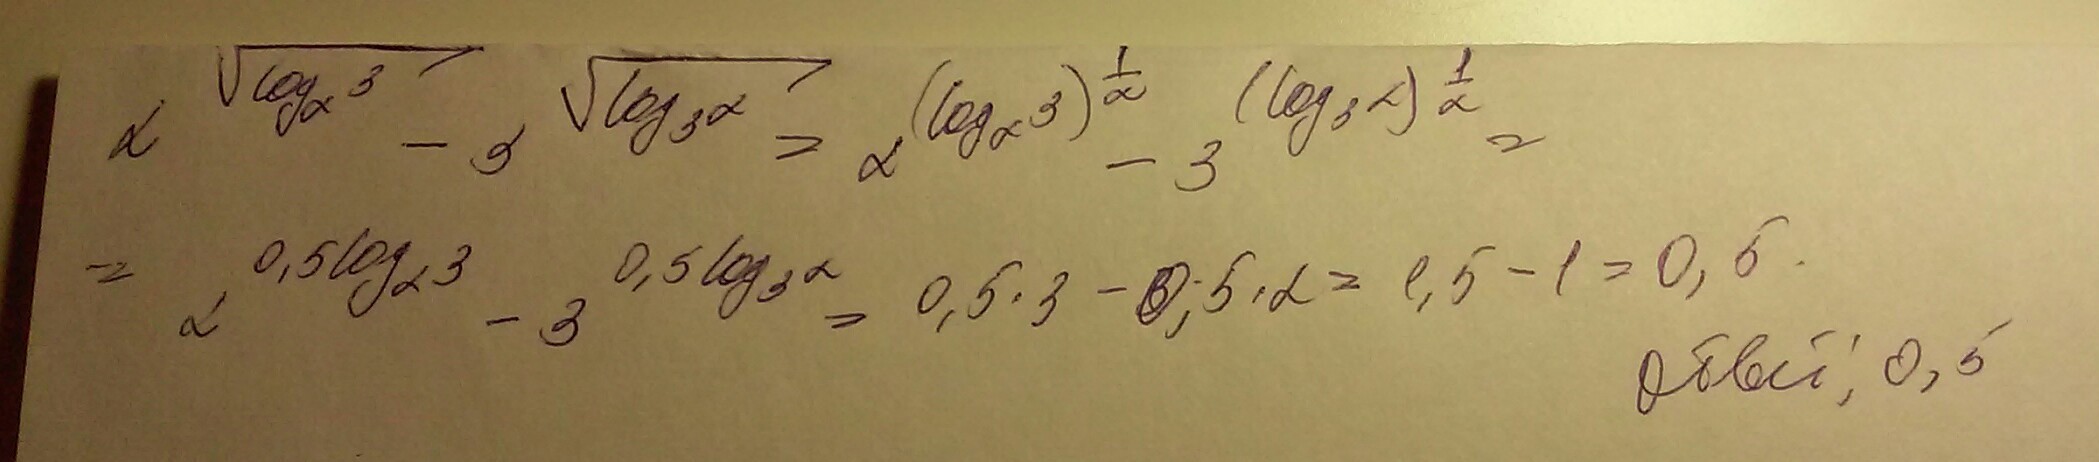 2^√(log₂3) - 3^√(log₃2) = 2^(log₂3)^(1/2) - 3^(log₃2)^(1/2) =
= 2^(0,5log₂3) - 3^(0,5log₃2) = 0,5·3 - 0,5·2 = 1,5 - 1 = 0,5.
Ответ: 0,5